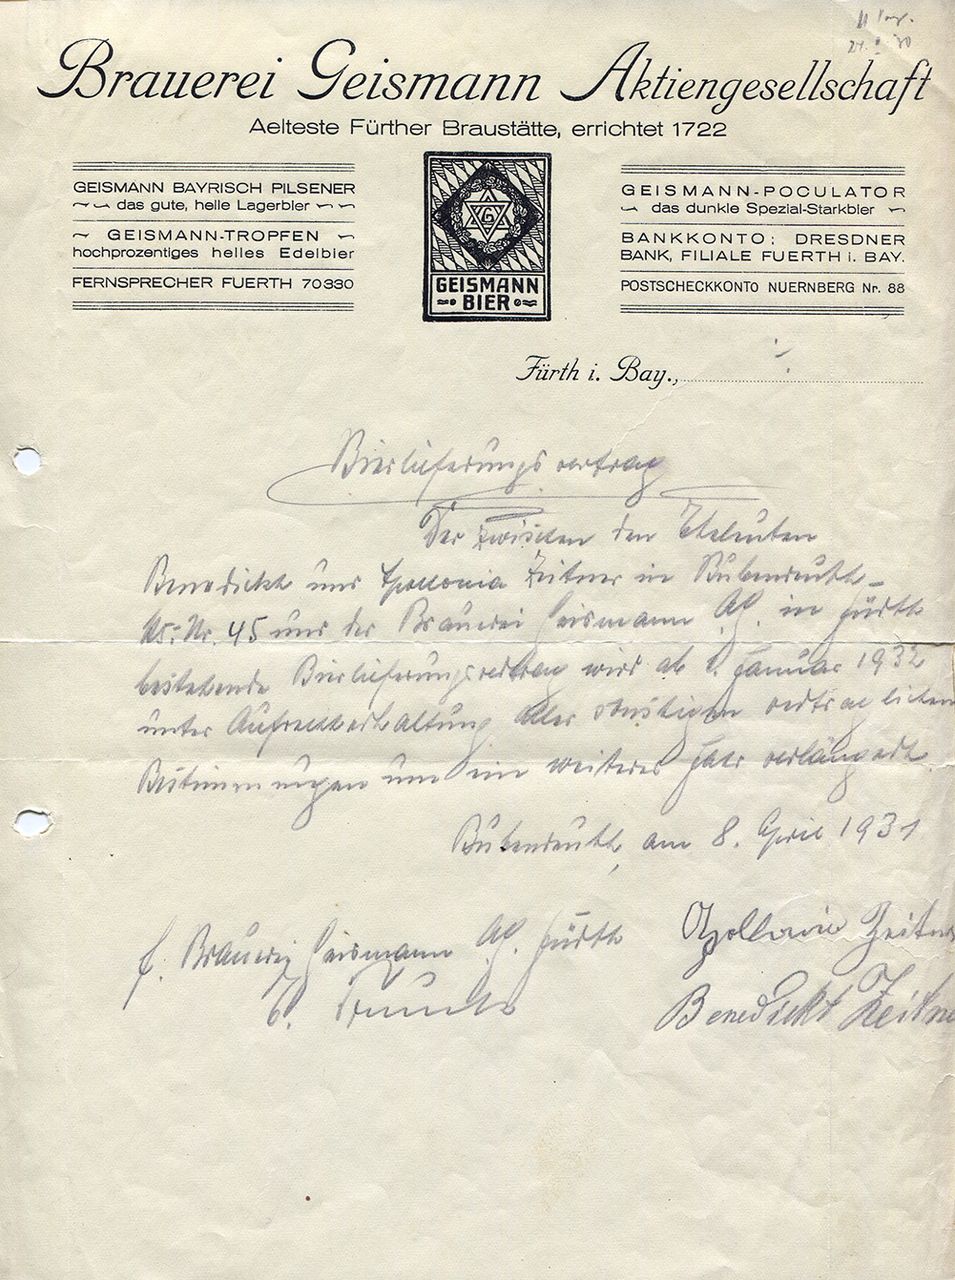 Brauerei Geismann Aktiengesellschaft
Aelteste Fürther Braustätte, errichtet 1722
GEISMANN BAYRISCH PILSENER
das gute, helle Lagerbier
GEISMANN-TROPFEN
hochprozentiges helles Edelbier
FERNSPRECHER FUERTH 70330
G
GEISMANN
BIER
GEISMANN-POCULATOR
das dunkle Spezial-Starkbier
BANKKONTO: DRESDNER
BANK, FILIALE FUERTH i. BAY.
POSTSCHECKKONTO NUERNBERG Nr. 88
Fürth i. Bay.,
Bierlieferungsvertrag
Der zwischen den Eheleuten
Benedickt und Apollonia Zeitner in Bubenreuth
Hs: Nr. 45 und der Brauerei Geismann A.G. in Fürth
bestehende Bierlieferungsvertrag wird ab 1. Januar 1932
unter Aufrechterhaltung aller sonstigen vertraglichen
Bestimmungen um ein weiteres Jahr verlängert.
Bubenreuth, am 8. April 1931
f. Brauerei Geismann A.G. Fürth
Apollonia Zeitner
Benedickt Zeitne